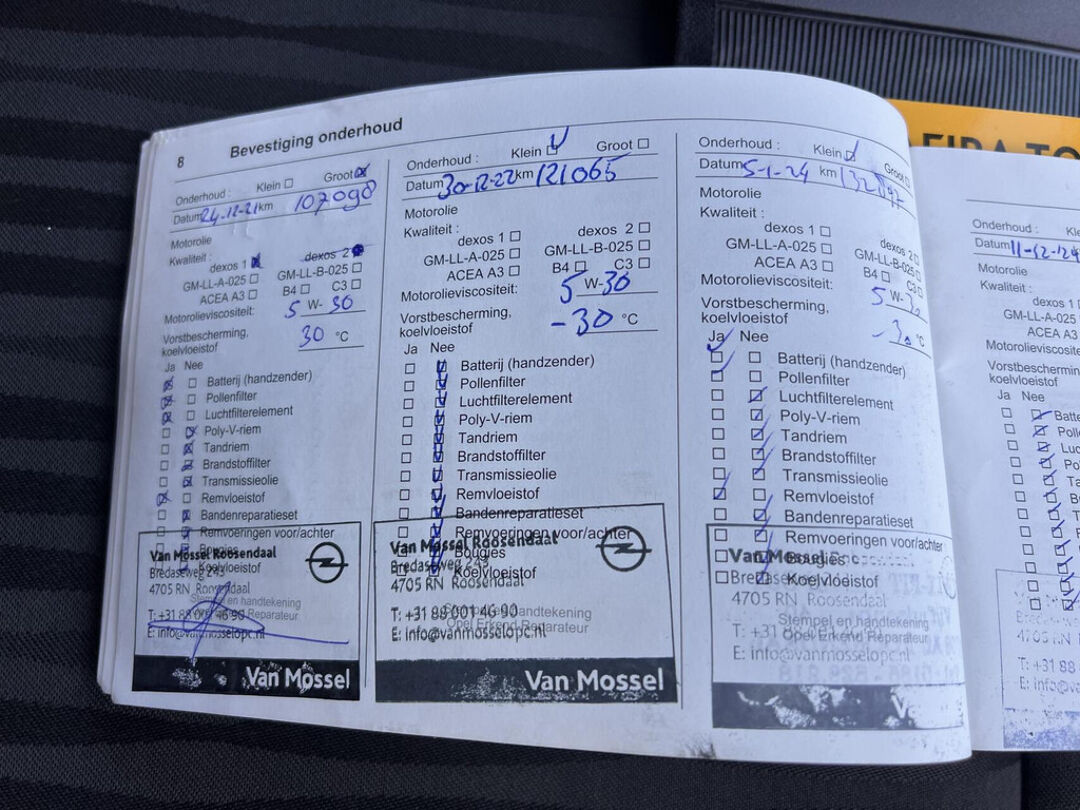 8 Bevestiging onderhoud
Onderhoud : Klein Groot
Datum 24-12-21 km 107098
Motorolie
Kwaliteit :
dexos 1 dexos 2
GM-LL-A-025 GM-LL-B-025
ACEA A3 B4 C3
Motorolieviscositeit: 5 W- 30
Vorstbescherming,
koelvloeistof 30 °C
Ja Nee
Batterij (handzender)
Pollenfilter
Luchtfilterelement
Poly-V-riem
Tandriem
Brandstoffilter
Transmissieolie
Remvloeistof
Bandenreparatieset
Remvoeringen voor/achter
Bougies
Koelvloeistof
Van Mossel Roosendaal
Bredaseweg 243
4705 RN Roosendaal
Stempel en handtekening
T: +31 88 001 46 90
Reparateur
E: info@vanmosselopc.nl
Van Mossel
Onderhoud : Klein Groot
Datum 30-12-22 km 121065
Motorolie
Kwaliteit :
dexos 1 dexos 2
GM-LL-A-025 GM-LL-B-025
ACEA A3 B4 C3
Motorolieviscositeit: 5 W-30
Vorstbescherming,
koelvloeistof -30 °C
Ja Nee
Batterij (handzender)
Pollenfilter
Luchtfilterelement
Poly-V-riem
Tandriem
Brandstoffilter
Transmissieolie
Remvloeistof
Bandenreparatieset
Remvoeringen voor/achter
Bougies
Koelvloeistof
Van Mossel Roosendaal
Bredaseweg 243
4705 RN Roosendaal
Stempel en handtekening
T: +31 88 001 46 90
Opel Erkend Reparateur
E: info@vanmosselopc.nl
Van Mossel
Onderhoud : Klein Groot
Datum 5-1-24 km
Motorolie
Kwaliteit :
dexos 1 dexos 2
GM-LL-A-025 GM-LL-B-025
ACEA A3 B4 C3
Motorolieviscositeit: 5 W-30
Vorstbescherming,
koelvloeistof -30 °C
Ja Nee
Batterij (handzender)
Pollenfilter
Luchtfilterelement
Poly-V-riem
Tandriem
Brandstoffilter
Transmissieolie
Remvloeistof
Bandenreparatieset
Remvoeringen voor/achter
Bougies
Koelvloeistof
Van Mossel
4705 RN Roosendaal
Stempel en handtekening
T: +31
Opel Erkend Reparateur
E: info@vanmosselopc.nl
Onderhoud : Kle
Datum 11-12-124
Motorolie
Kwaliteit :
dexos 1
GM-LL-A-025
ACEA A3
Motorolieviscositeit
Vorstbescherming
koelvloeistof
Ja Nee
Batte
Polle
Luc
Po
Ta
B
4705 RN
T: +31 88
E: info@va